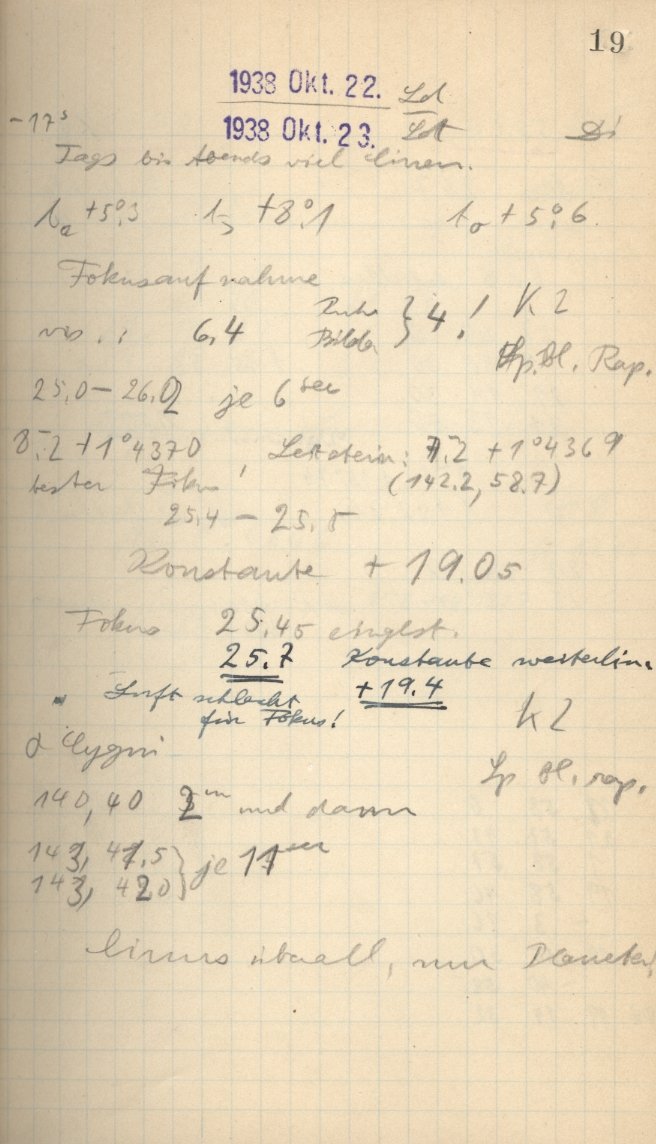 19
1938 Okt. 22.
-17ˢ 1938 Okt. 23.
Tags bis Abends viel Cirren.
+5°,3 +8°,1 +5°,6
Fokusaufnahme
Ruhe K 2
vis. : 6,4 Bilder } 4 !
Sp. Bl. Rap.
25,0 – 26,0 je 6 sec
8.2 +1°4370, Leitstern: 7.2 +1°4369
bester Fokus (142.2, 58.7)
25,4 – 25,5
Konstante + 19.05
Fokus 25,45 eingest.
25.7 Konstante weiterhin
Luft schlecht +19.4
für Fokus! K 2
α Cygni
Sp Bl. rap.
140,40 2ᵐ und dann
143, 41,5 } je 11 sec
143, 42,0
Cirrus überall, nur Planeten!